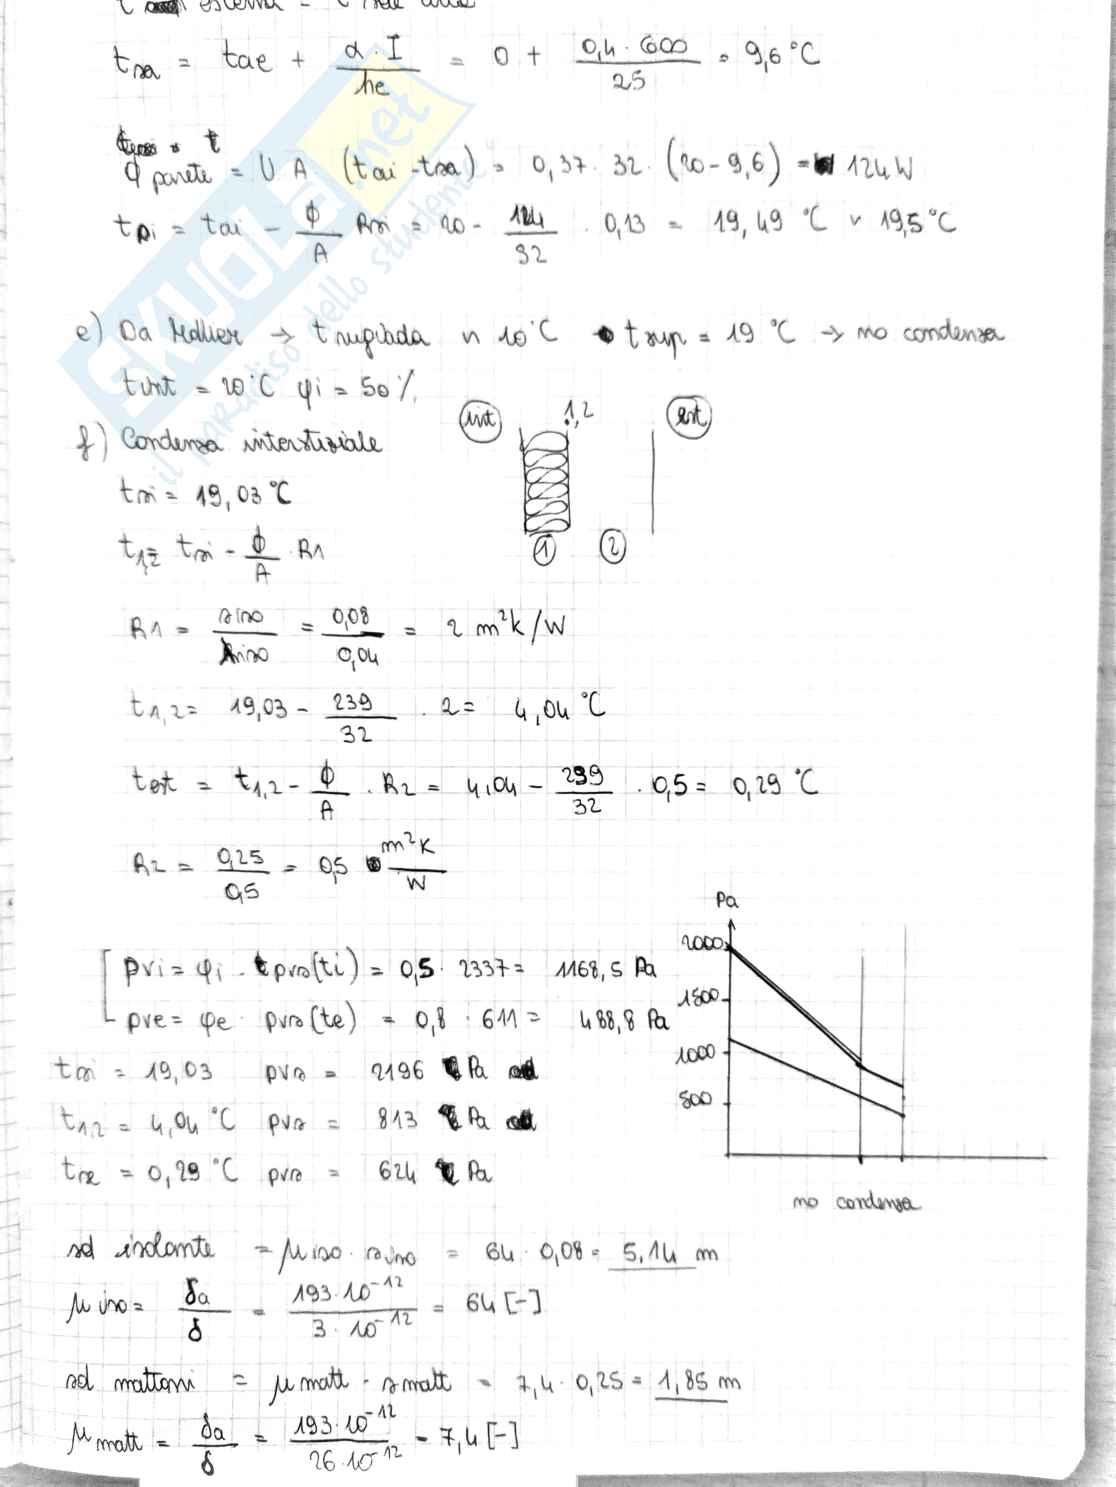 t esterna = t
tsa = tae + α · I / he = 0 + 0,4 · 600 / 25 = 9,6 °C
ϕ parete = U A (tai - tsa) = 0,37 · 32 · (20 - 9,6) = 124 W
tpi = tai - ϕ/A Rsi = 20 - 124/32 · 0,13 = 19,49 °C ~ 19,5 °C
e) Da Mollier → t rugiada ~ 10 °C tsup = 19 °C → no condensa
tint = 20 °C φi = 50 %
f) Condensa interstiziale
int 1,2 est
1 2
tsi = 19,03 °C
t1,2 = tsi - ϕ/A · R1
R1 = siso / λiso = 0,08 / 0,04 = 2 m²K/W
t1,2 = 19,03 - 239/32 · 2 = 4,04 °C
test = t1,2 - ϕ/A · R2 = 4,04 - 239/32 · 0,5 = 0,29 °C
R2 = 0,25 / 0,5 = 0,5 m²K/W
pvi = φi · pvs(ti) = 0,5 · 2337 = 1168,5 Pa
pve = φe · pvs(te) = 0,8 · 611 = 488,8 Pa
tsi = 19,03 pvs = 2196 Pa
t1,2 = 4,04 °C pvs = 813 Pa
tse = 0,29 °C pvs = 624 Pa
Pa
2000
1500
1000
500
no condensa
sd isolante = μiso · siso = 64 · 0,08 = 5,14 m
μiso = δa / δ = 193 · 10⁻¹² / 3 · 10⁻¹² = 64 [-]
sd mattoni = μmatt · smatt = 7,4 · 0,25 = 1,85 m
μmatt = δa / δ = 193 · 10⁻¹² / 26 · 10⁻¹² = 7,4 [-]
SKUOLA.net
il paradiso dello studente